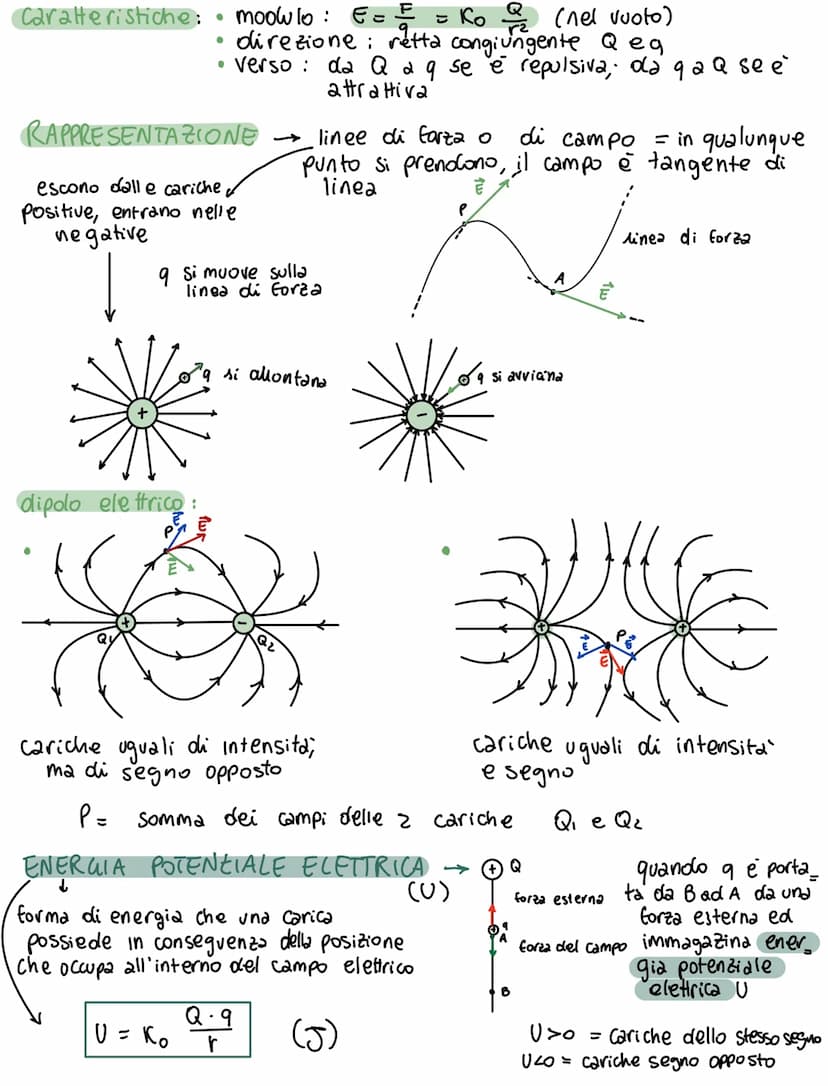 Caratteristiche: • modulo: E = F/q = K₀ Q/r² (nel vuoto)
• direzione: retta congiungente Q e q
• verso: da Q a q se è repulsiva, da q a Q se è
attrattiva
RAPPRESENTAZIONE → linee di forza o di campo = in qualunque
punto si prendono, il campo è tangente di
linea
escono dalle cariche
positive, entrano nelle
negative
E
P
linea di forza
A
E
q si muove sulla
linea di forza
q si allontana
+
q si avvicina
-
dipolo elettrico:
P E E
E
+ -
Q₁ Q₂
+ +
P
E E
E
cariche uguali di intensità,
ma di segno opposto
cariche uguali di intensità
e segno
P = somma dei campi delle 2 cariche Q₁ e Q₂
ENERGIA POTENZIALE ELETTRICA →
(U)
forma di energia che una carica
possiede in conseguenza della posizione
che occupa all'interno del campo elettrico
U = K₀ Q·q/r (J)
+ Q
forza esterna
q
A
forza del campo
B
quando q è porta_
ta da B ad A da una
forza esterna ed
immagazina ener_
gia potenziale
elettrica U
U>0 = cariche dello stesso segno
U<0 = cariche segno opposto